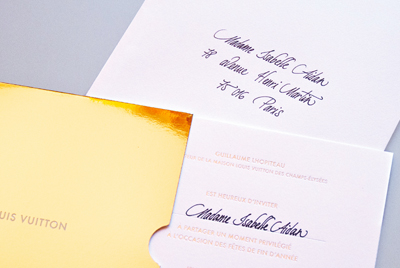 Madame Isabelle Aidan
78 avenue Henri Martin
75 016 Paris
UIS VUITTON
GUILLAUME LHOPITEAU
MAISON LOUIS VUITTON DES CHAMPS ÉLYSÉES
EST HEUREUX D'INVITER
Madame Isabelle Aidan
À PARTAGER UN MOMENT PRIVILÉGIÉ
À L'OCCASION DES FÊTES DE FIN D'ANNÉE